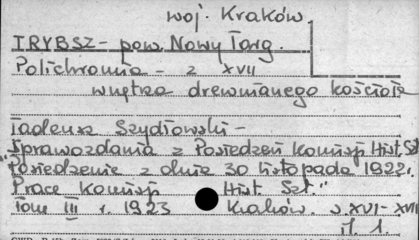 woj. Kraków
TRYBSZ - pow. Nowy Targ.
Polichromia - z XVII
wnętrza drewnianego kościoła
Tadeusz Szydłowski -
"Sprawozdania z Posiedzeń Komisji Hist. Szt
Posiedzenie z dnia 30 listopada 1922.
Prace Komisji Hist Szt."
Tom III r. 1923 Kraków. s. XVI - XVII
il. 1.